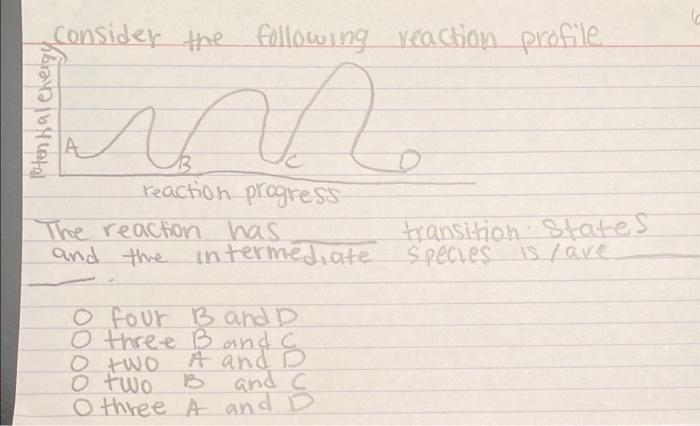 consider the following reaction profile
Potential energy
A
B
C
D
reaction progress
The reaction has ____ transition States
and the intermediate species is / are ____
____.
O four B and D
O three B and C
O two A and D
O two B and C
O three A and D